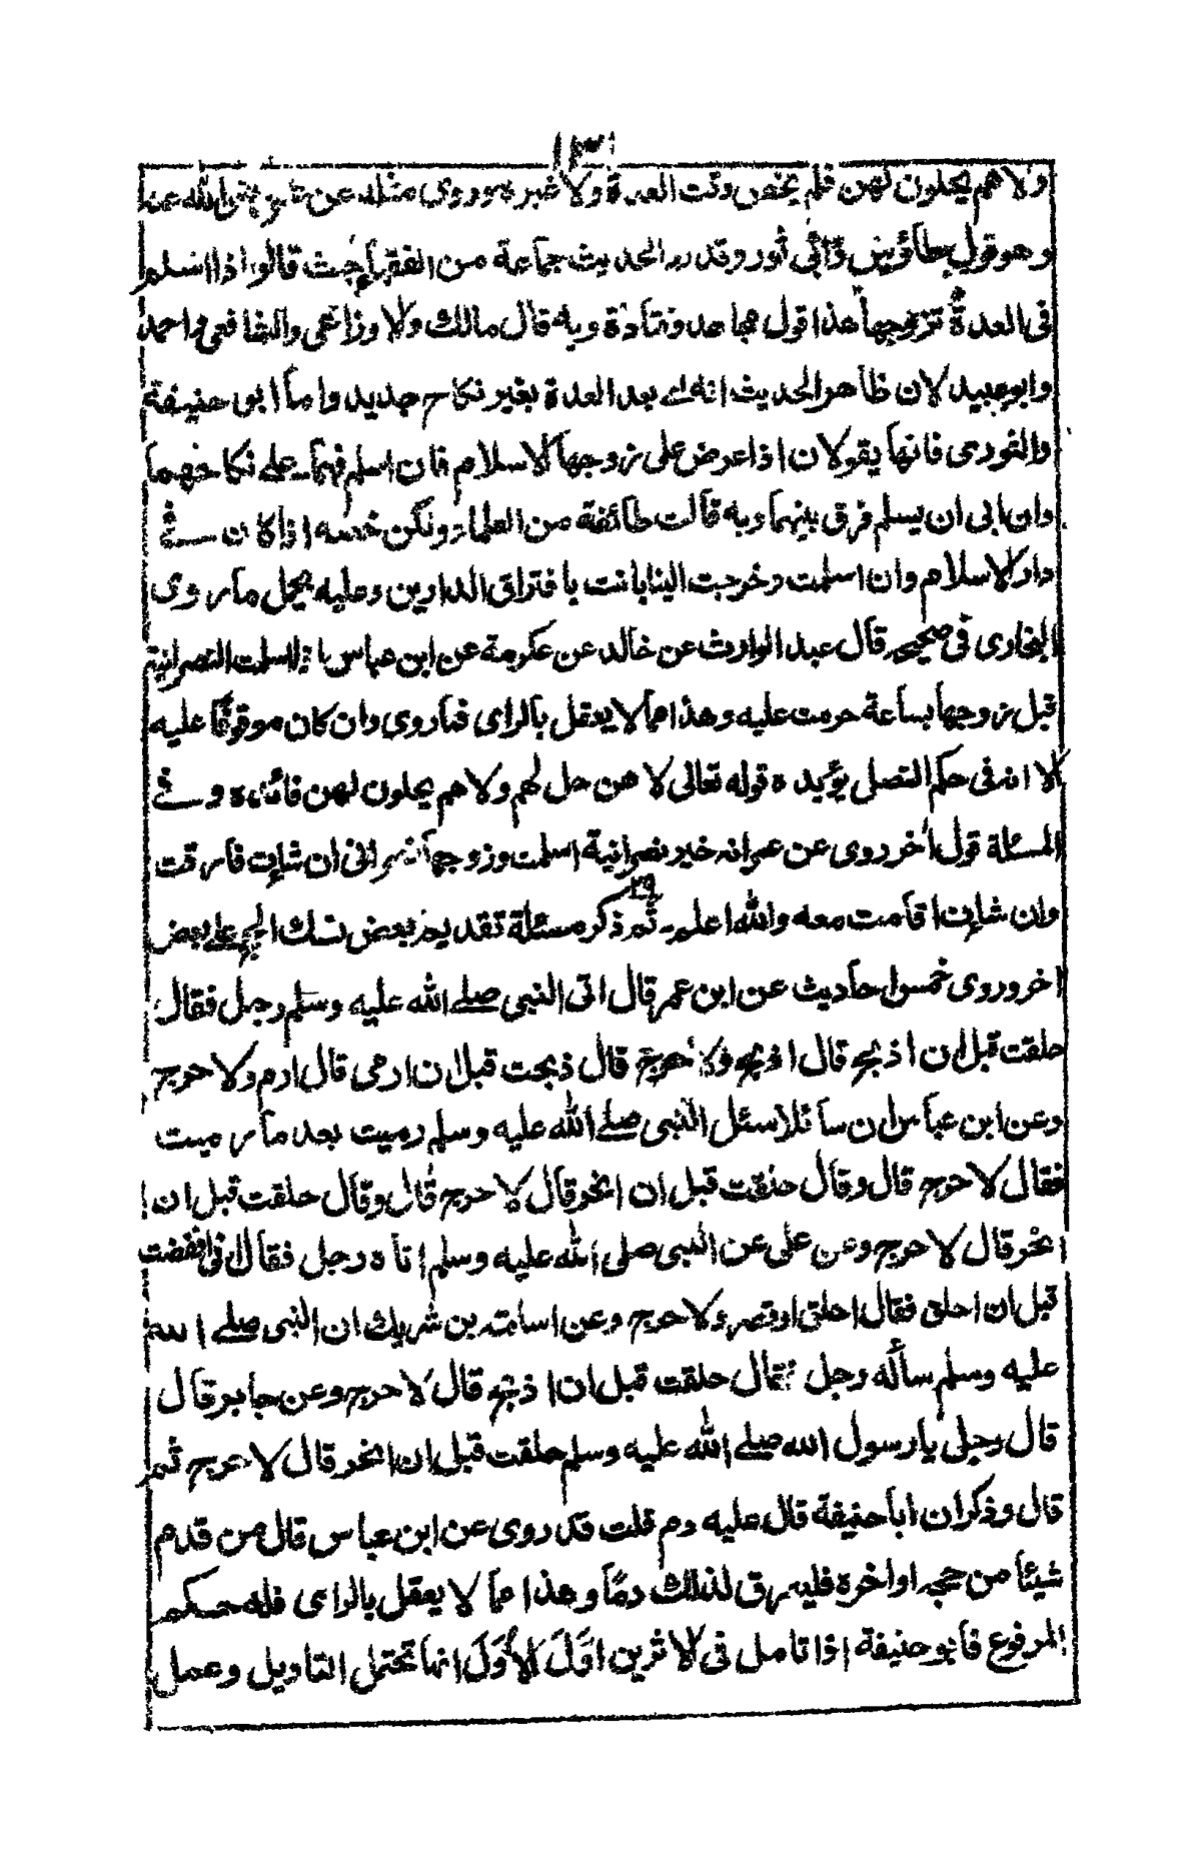 ١٣١
ولا هم يحلون لهن فلم يخص وقت العدة ولا غيره وروى مثله عن على رضى الله عنه
وهو قول طاؤس وأبى ثور وقد رد الحديث جماعة من الفقهاء حيث قالوا اذا اسلم
فى العدة تزوجها هذا قول مجاهد وقتادة وبه قال مالك والاوزاعى والشافعى واحمد
وابو عبيد لان ظاهر الحديث انه اے بعد العدة بغير نكاح جديد واما ابو حنيفة
والثورى فانها يقولان اذا عرض على زوجها الاسلام فان اسلم فهما على نكاحهما
وان ابى ان يسلم فرق بينهما وبه قالت طائفة من العلماء ولكن اذا كان فے
دار الاسلام وان اسلمت وخرجت الينا بانت بافتراق الدارين وعليه يحمل ما روى
البخارى فى صحيحه قال عبد الوارث عن خالد عن عكرمة عن ابن عباس اذا اسلمت النصرانية
قبل زوجها بساعة حرمت عليه وهذا مما لا يعقل بالراى فما روى وان كان موقوفا عليه
الا انه فى حكم المتصل يؤيده قوله تعالى لا هن حل لهم ولا هم يحلون لهن فائده وفے
المسئلة قول أخر روى عن عمر انه خير نصرانية اسلمت وزوجها نصرانى ان شاءت فارقت
وان شاءت اقامت معه والله اعلم ٣٩ ثم ذكر مسئلة تقديم بعض نسك الحج على بعض
اخر وروى خمس احاديث عن ابن عمر قال اتى النبى صلے الله عليه وسلم رجل فقال
حلقت قبل ان اذبح قال اذبح ولا حرج قال ذبحت قبل ان ارمى قال ارم ولا حرج
وعن ابن عباس ان سائلا سئل النبى صلے الله عليه وسلم رميت بعد ما رميت
فقال لا حرج قال وقال حلقت قبل ان انحر قال لا حرج قال وقال حلقت قبل ان
انحر قال لا حرج وعن على عن النبى صلى الله عليه وسلم اتاه رجل فقال انى افضت
قبل ان احلق فقال احلق او قصر ولا حرج وعن اسامة بن شريك ان النبى صلے الله
عليه وسلم سأله رجل فقال حلقت قبل ان اذبح قال لا حرج وعن جابر قال
قال رجل يا رسول الله صلے الله عليه وسلم حلقت قبل ان انحر قال لا حرج ثم
قال وذكر ان ابا حنيفة قال عليه دم قلت قد روى عن ابن عباس قال من قدم
شيئا من حجه او اخره فليهرق لذلك دمًا وهذا مما لا يعقل بالراى فله حكم
المرفوع فابو حنيفة اذا تامل فى الاثرين اوَّلَ الأُوَلَ انها تحتمل التاويل وعمل